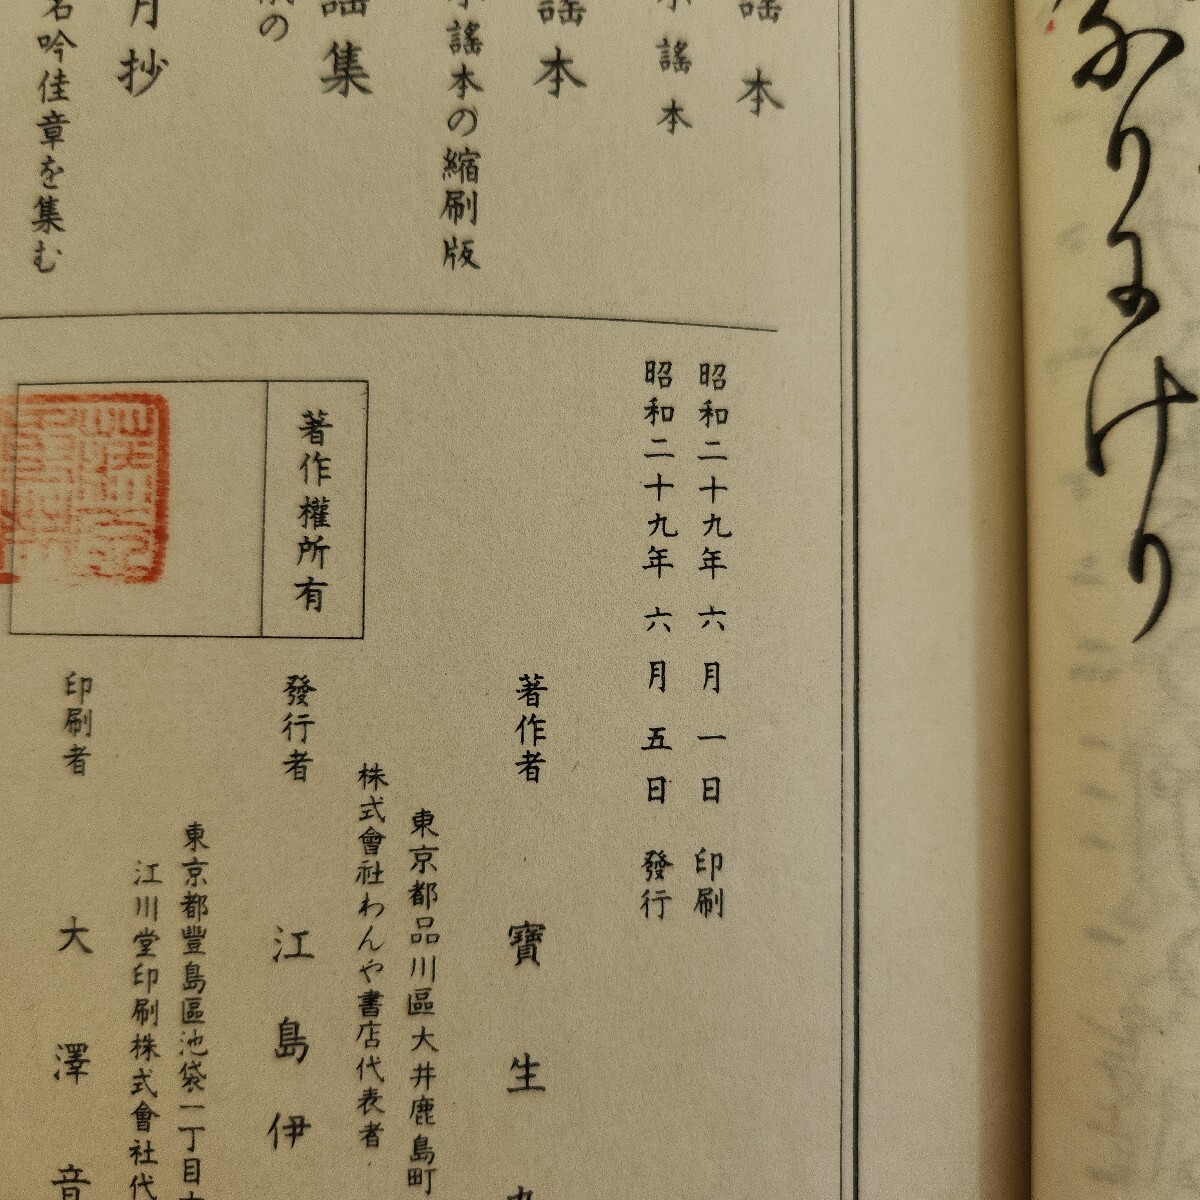 なりにけり
謡本
謡本
謡本
謡本の縮刷版
謡集
の
月抄
名吟佳章を集む
昭和二十九年六月一日 印刷
昭和二十九年六月五日 發行
著作權所有
著作者 寶生
東京都品川區大井鹿島町
株式會社わんや書店代表者
發行者 江島伊
東京都豐島區池袋一丁目
江川堂印刷株式會社代
印刷者 大澤音